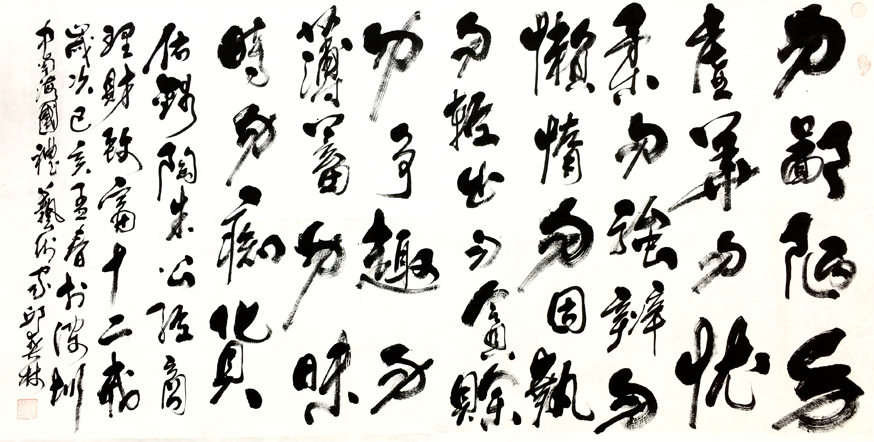 勿鄙陋勿
虛華勿忧
柔勿強辯勿
懶惰勿固執
勿輕出勿貪賒
勿爭趣勿
薄蓄勿昧
時勿痴貨
錄陶朱公經商
理財致富十二戒
歲次己亥孟春於深圳
中南海國禮藝術家邱林